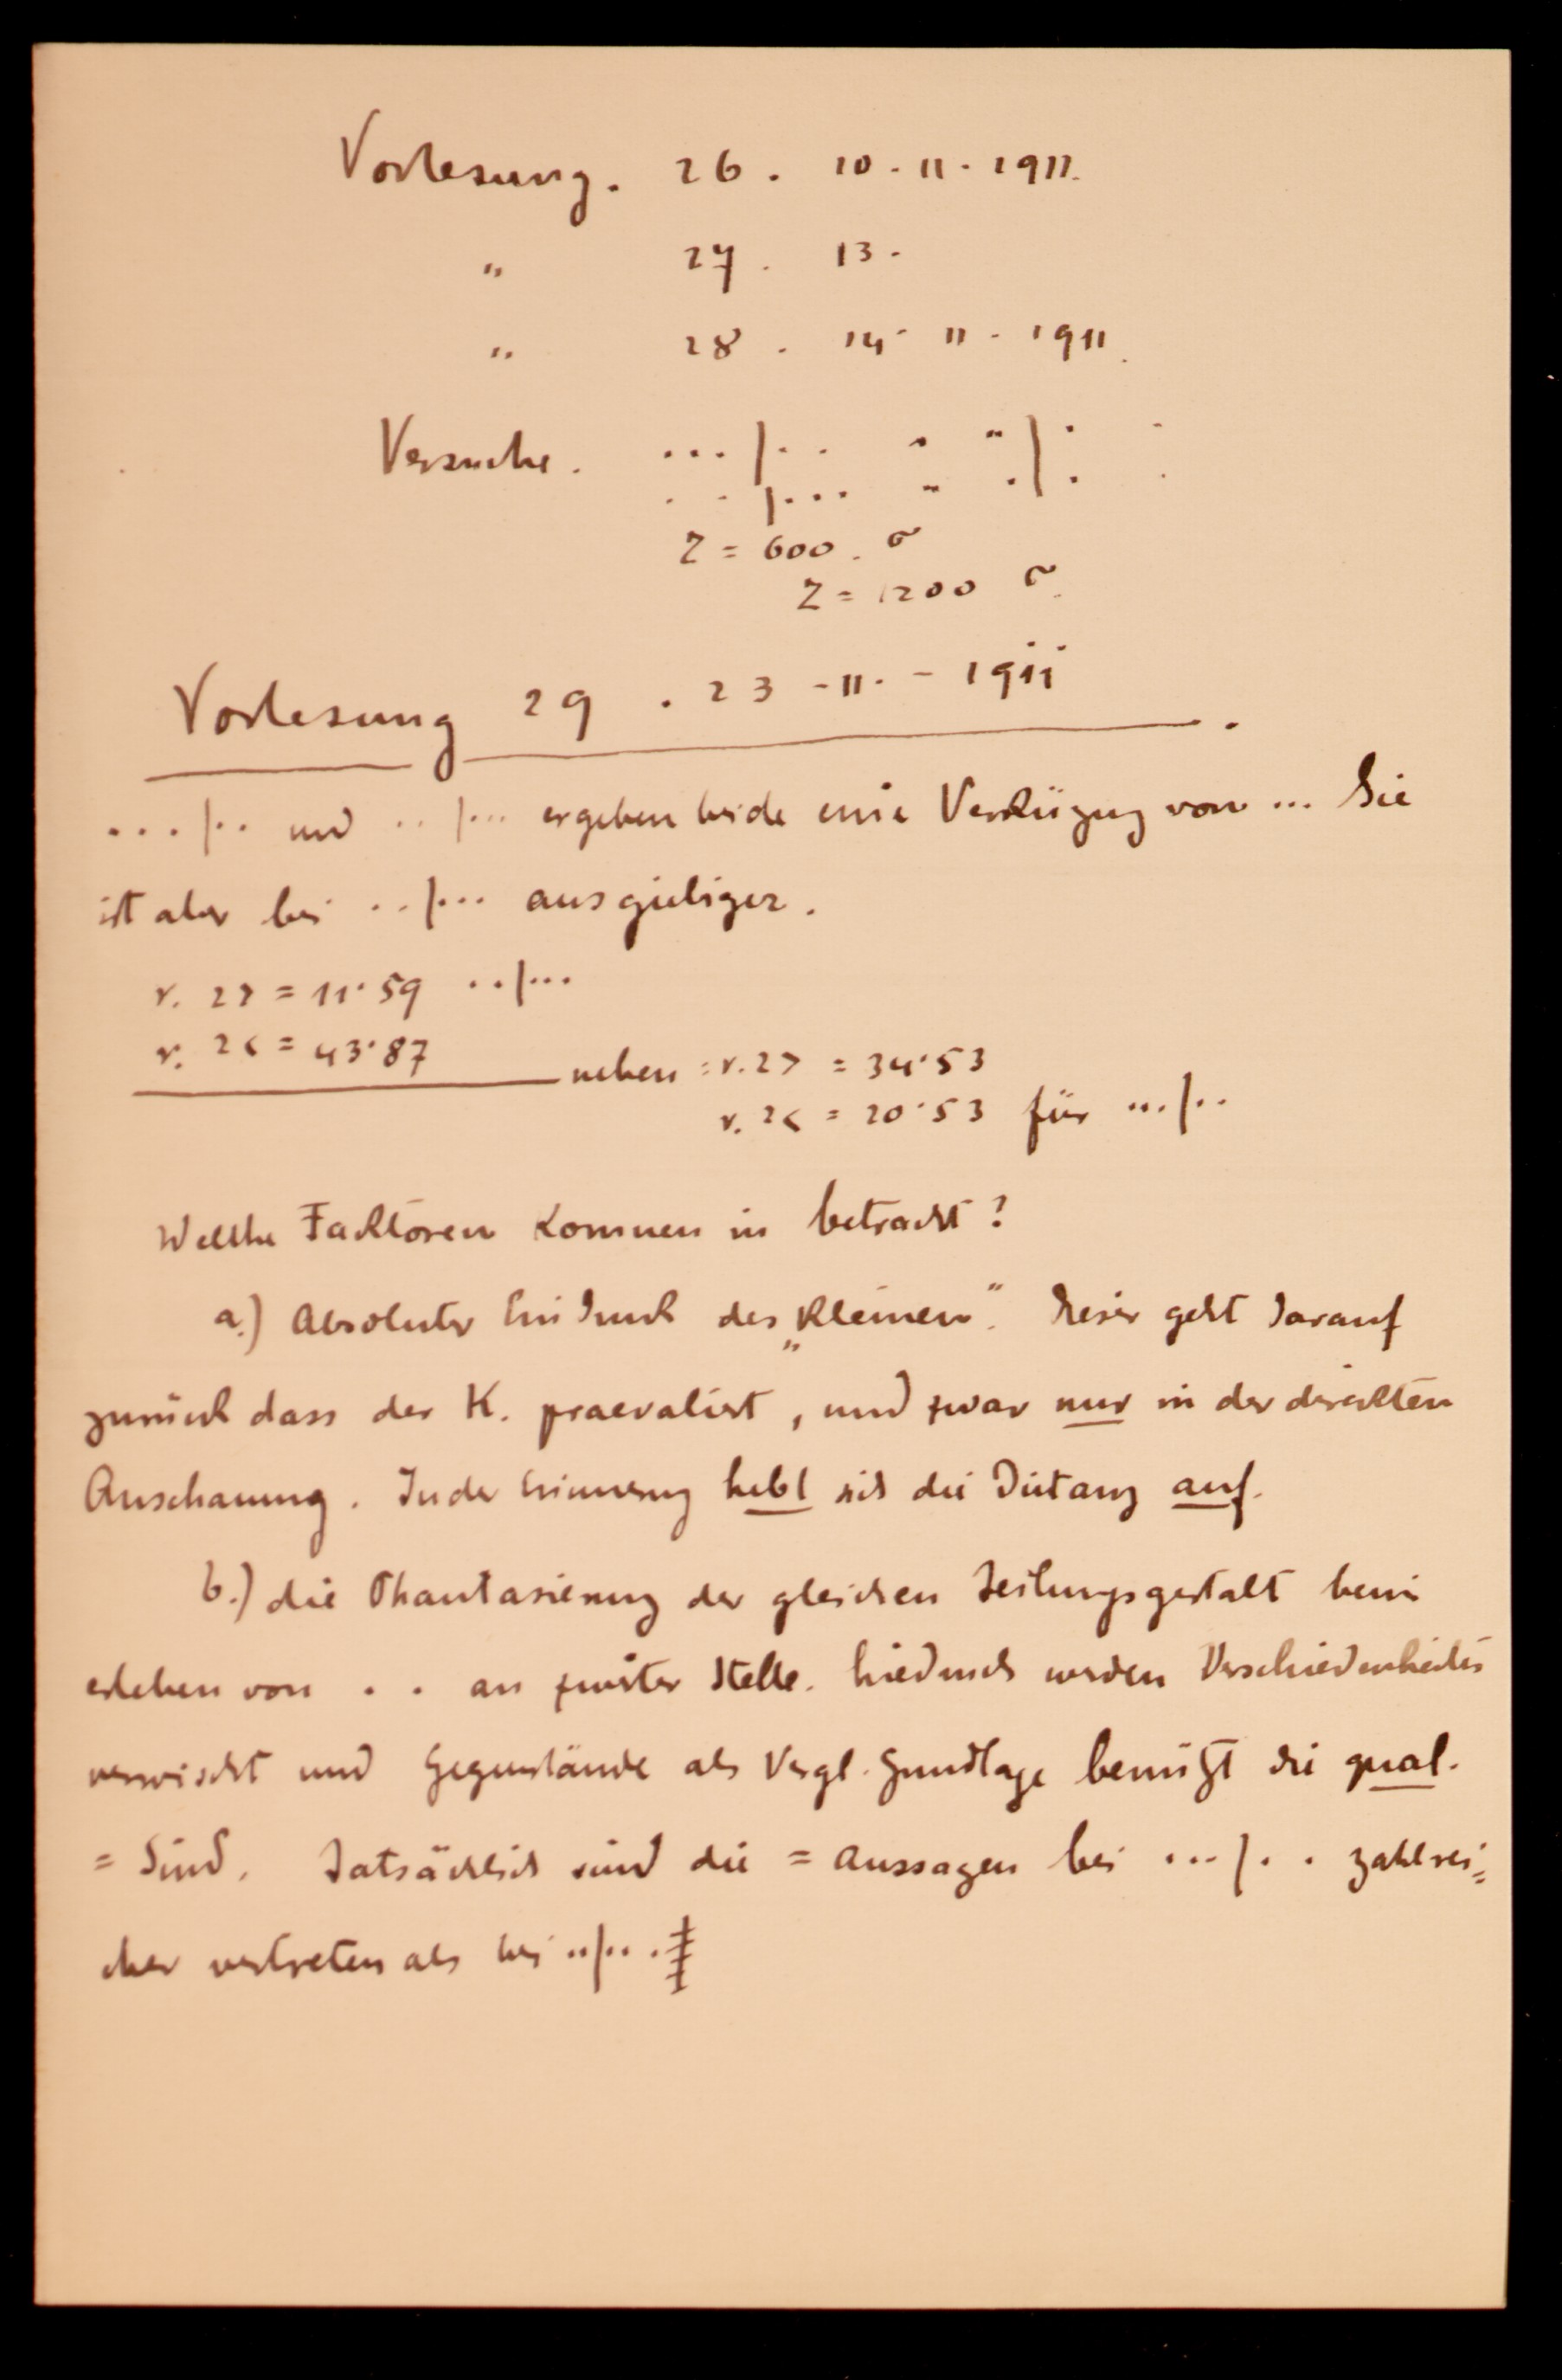 Vorlesung. 26. 10.-11.-1911.
" 27. 13.
" 28. 14. 11-1911.
Versuche. .../.. " "/:
../... " ./:
Z = 600. σ
Z = 1200 σ.
Vorlesung 29. 23-11.-1911.
.../.. und ../... ergeben beide eine Verkürzung von ... Sie
ist aber bei ../... ausgiebiger.
r. 2> = 11·59 ../...
r. 2< = 43·87
neben: r. 2> = 34·53
r. 2< = 20·53 für .../..
Welche Facktoren kommen in betracht?
a.) Absoluter Eindruck des „kleinen". Dieser geht darauf
zurück dass der K. praevaliert, und zwar nur in der direckten
Anschauung. In der Erinnerung hebt sich die Distanz auf.
b.) die Phantasierung der gleichen Teilungsgestalt beim
erleben von . . an zweiter Stelle. hiedurch werden Verschiedenheiten
verwischt und Gegenstände als Vergl. Grundlage benützt die qual.
= Sind. Tatsächlich sind die = Aussagen bei .../.. zahlrei=
cher vertreten als bei ../...